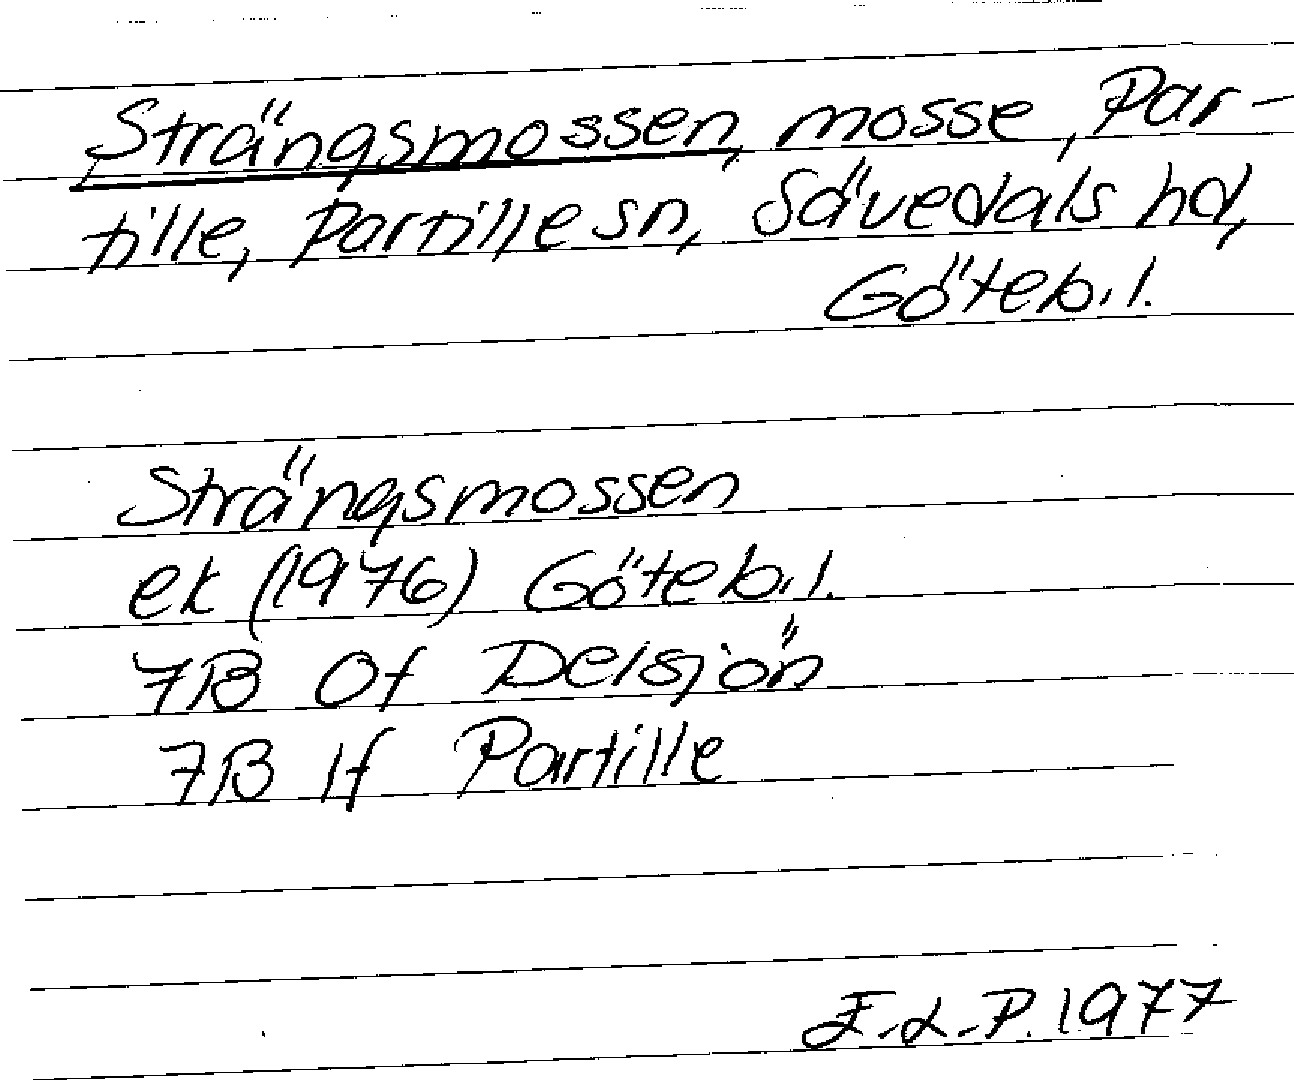 Strängsmossen, mosse, Par-
tille, Partille sn, Sävedals hd,
Göteb. l.
Strängsmossen
ek (1976) Göteb. l.
7B 0f Delsjön
7B 1f Partille
E.-L.P. 1977